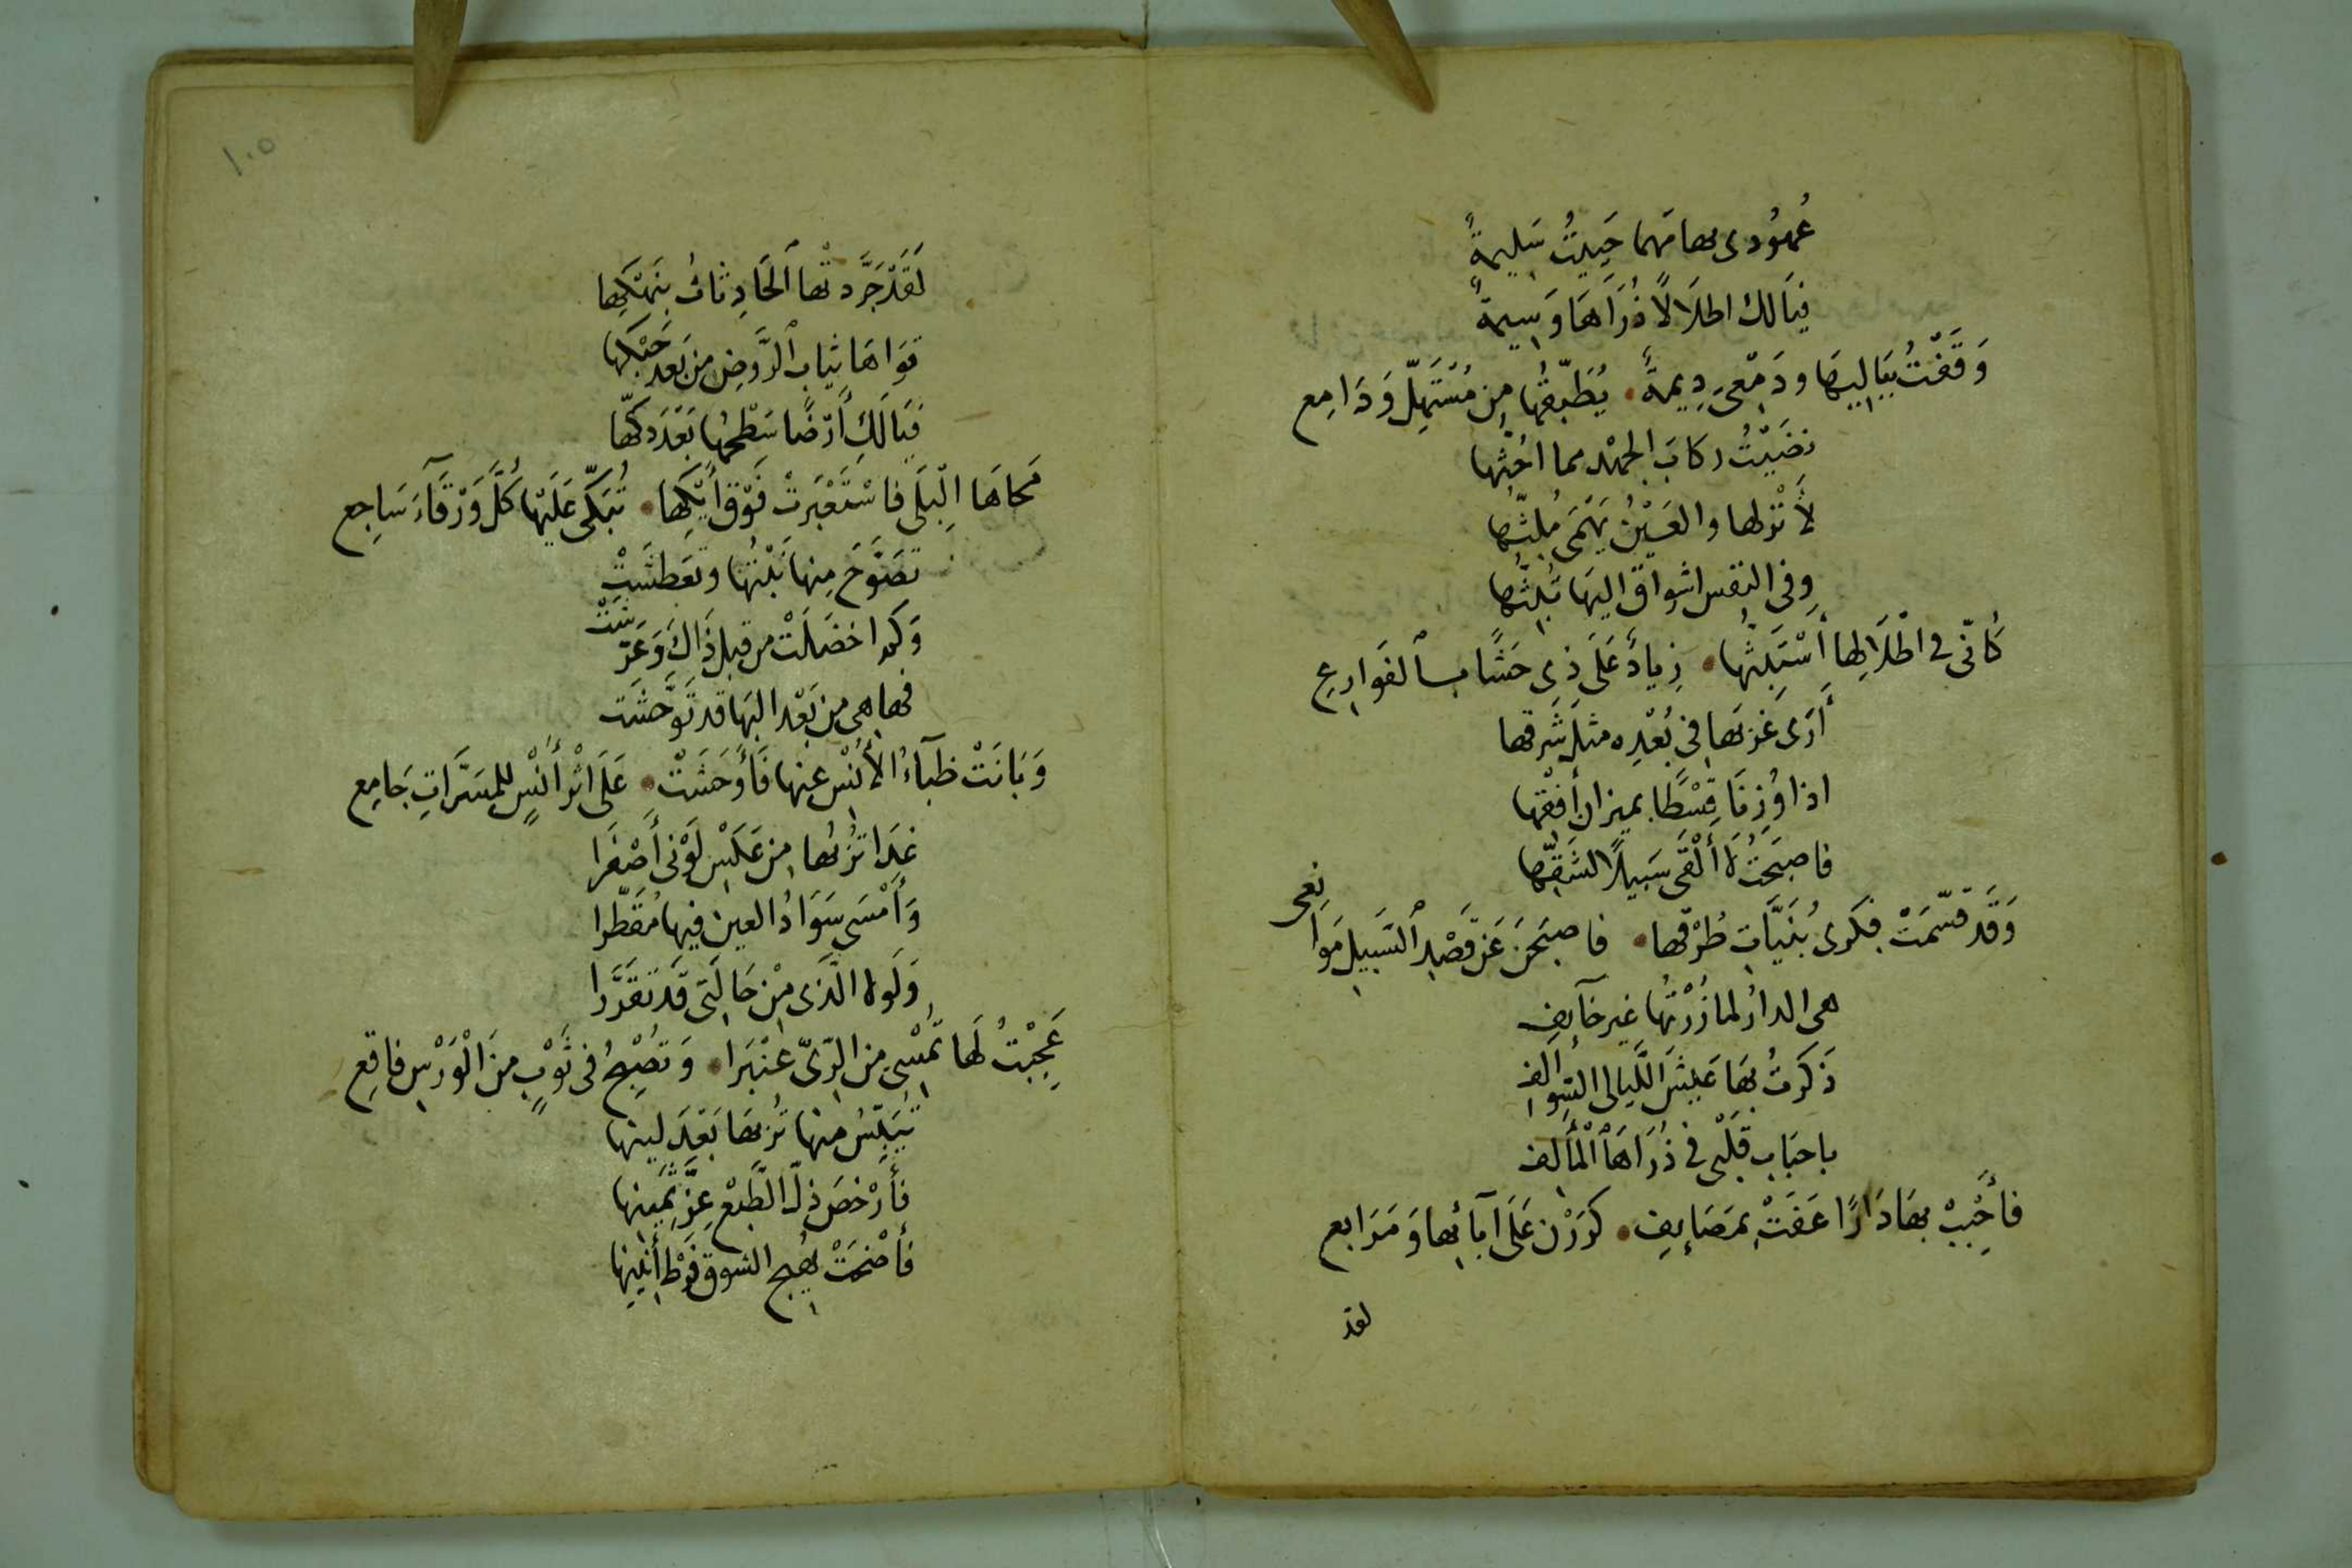 عُهُودى بها مَهما حَيِيتُ سَلِيمةٌ
فيَا لك اطلَالًا ذُرَاهَا وَسِيمةٌ
وَقَفْتُ بِبَالِيهَا ودَمْعىَ دِيمةٌ • يُطَبِّقُهَا مِن مُسْتَهِلٍّ وَدَامِع
نضَيْتُ ركابَ الجهْد مما احُثّها
لأنْزلها والعَيْنُ يَهْمَى مُلِثّها
وفى النفس اشواق اليهَا تَبُثّها
كأنّى فى اطْلَالِهَا أَسْتَبِثُّها • زِيادٌ عَلَى ذى حَسًا بالفَوارِعِ
أرَى غَرْبَها فى بُعْدِه مثلَ شَرقها
اذا وُزِنَا قِسْطًا بميزان أُفْقها
فاصبَحتُ لا أَلْقَى سَبيلًا لشَقّها
وَقَد قسّمَتْ فِكرى بُنَيَّات طُرْقها • فاصبَحنَ عَن قَصْدِ السَّبيلِ مَوانِعى
هى الدارُ لما زُرْتُها غيرَ خآيفِ
ذَكَرتُ بهَا عَيشَ اللَّيالى السَّوالف
باحبَاب قَلْبى فى ذُرَاهَا الْمَآلف
فأَحْبِبْ بهَا دَارًا عَفَتْ بمَصَايِفٍ • كرَرْن عَلَى آبآئها وَمَرَابع
لقد
١٠٥
لَقَدْ جَرَّدتْها الحَادِثاتُ بنَهْكِها
قوَاهَا ثِيابَ الرَّوضِ من بَعد حَبْكها
فيَا لَكِ أرْضًا سَطْحُها بَعْدَ دكّها
مَحاهَا الْبِلَى فاسْتَعْبَرتْ فَوْقَ أَيْكِها • تُبَكّى عَلَيْها كُلَّ وَرْقَآءَ سَاجِع
تصَوَّحَ مِنها نَبْتُها وتَعَطشَتْ
وَكم اخضَلَتْ من قبل ذَاكَ وَعَرّشَتْ
فها هى من بَعْد البهَا قد تَوَحّشَت
وَبَانَتْ ظبَآءُ الأُنْس عنها فَأوْحَشَتْ • عَلَى اثْر أُنْسٍ للمسَرّاتِ جَامِع
غدَا تُرْبُها من عَكْسِ لَوْنى أَصْفَرا
وَأَمْسَى سَوَادُ العين فيها مُقَطّرا
وَلَولا الّذى مِنْ حَالَتى قَد تقَرَّرا
عَجِبْتُ لَهَا تُمْسِى من الرّىّ عنْبَرا • وَتُصْبِحُ فى ثَوْبٍ منَ الْوَرْسِ فاقِع
تُيَبِّسُ منها تُربها بَعْدَ لينها
فأَرْخصَ ذلّ الطّبْع عِزَّ ثَمينها
فأَضْحَتْ يُهيج الشوق فَرْط أَنينها